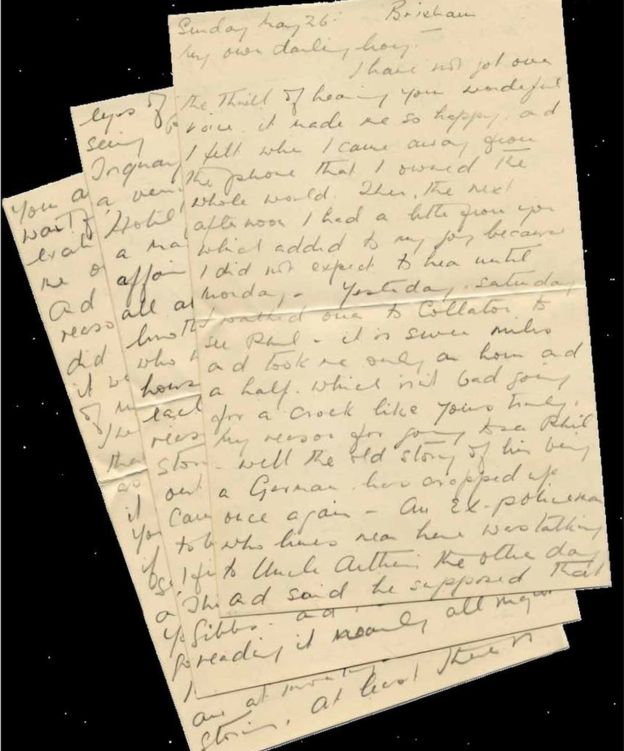 Sunday May 26. Brixham
My own darling boy.
I have not got over
the thrill of hearing your wonderful
voice. it made me so happy. and
I felt when I came away from
the phone that I owned the
whole world. Then, the next
afternoon I had a letter from you
which added to my joy because
I did not expect to hear until
Monday. Yesterday, Saturday
I walked over to Collaton to
see Phil - it is seven miles
and took me only an hour and
a half. which isn't bad going
for a crock like yours truly.
My reason for going to see Phil
well the old story of his being
a German has cropped up
once again - An Ex-policeman
who lives near here was talking
to Uncle Arthur the other day
and said he supposed that
eyes of
seing
Torquay
a very
Hotel
a man
affair
all at
who
house
each
story
out
came
to
I fe
The
Gibbs. and
reading it nearly all night
You a
want
me o
and
reaso
did
it
of m
the
as
it
You
are at
stories. at least there is